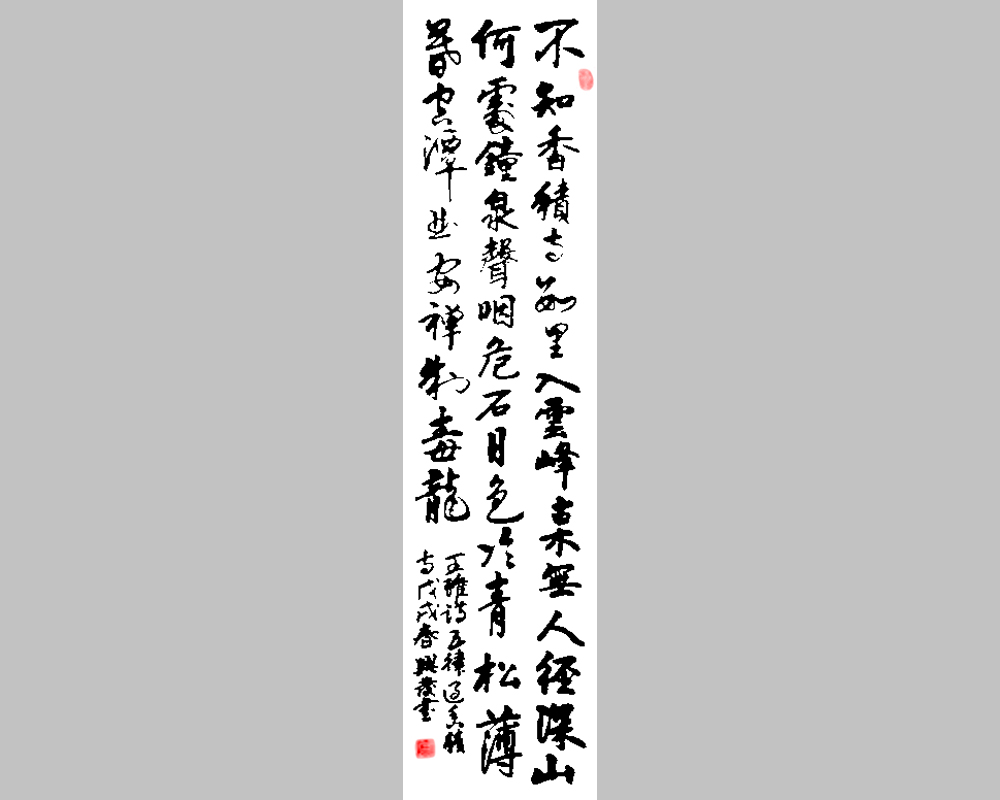 不知香積寺數里入雲峰古木無人徑深山
何處鐘泉聲咽危石日色冷青松薄
暮空潭曲安禪制毒龍
王維詩五律過香積
寺戊戌春興發書